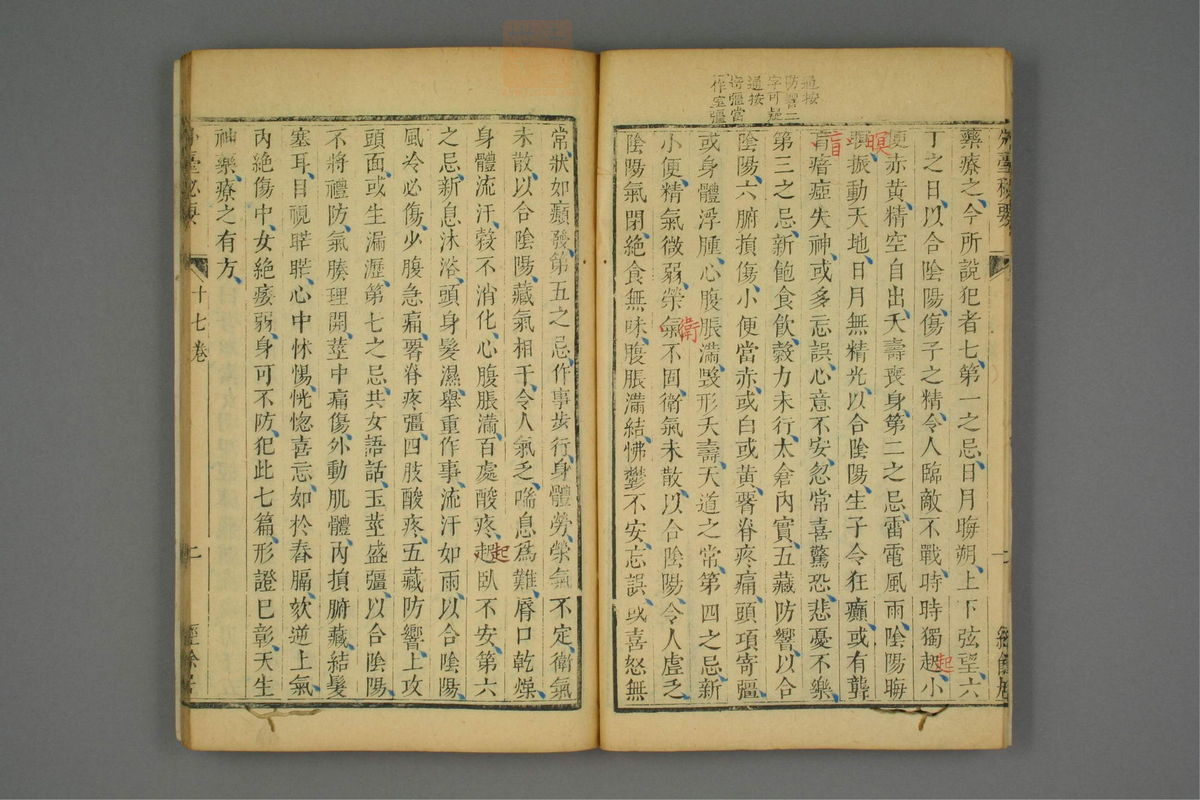 通按
防響二
字可疑
通按
寄彊當
作室彊
藥療之今所說犯者七第一之忌日月晦朔上下弦望六
丁之日以合陰陽傷子之精令人臨敵不戰時時獨起小
起
便赤黃精空自出夭壽喪身第二之忌雷電風雨陰陽晦
暝
暝振動天地日月無精光以合陰陽生子令狂癲或有聾
盲
盲瘖瘂失神或多忘誤心意不安忽常喜驚恐悲憂不樂
第三之忌新飽食飲穀力未行太倉內實五藏防響以合
陰陽六腑損傷小便當赤或白或黃䐡脊疼痛頭項寄彊
或身體浮腫心腹脹滿毀形夭壽天道之常第四之忌新
小便精氣微弱榮氣不固衛氣未散以合陰陽令人虛乏
衛
陰陽氣閉絕食無味腹脹滿結怫鬱不安忘誤或喜怒無
外臺秘要
常狀如癲發第五之忌作事步行身體勞榮氣不定衛氣
未散以合陰陽藏氣相干令人氣乏喘息爲難脣口乾燥
身體流汗穀不消化心腹脹滿百處酸疼起臥不安第六
起
之忌新息沐浴頭身髮濕舉重作事流汗如雨以合陰陽
風冷必傷少腹急痛䐡脊疼彊四肢酸疼五藏防響上攻
頭面或生漏瀝第七之忌共女語話玉莖盛彊以合陰陽
不將禮防氣腠理開莖中痛傷外動肌體內損腑藏結髮
塞耳目視䀮䀮心中怵惕恍惚喜忘如杵舂膈欬逆上氣
內絕傷中女絕痿弱身可不防犯此七篇形證已彰天生
神藥療之有方
十七卷
二
經餘居